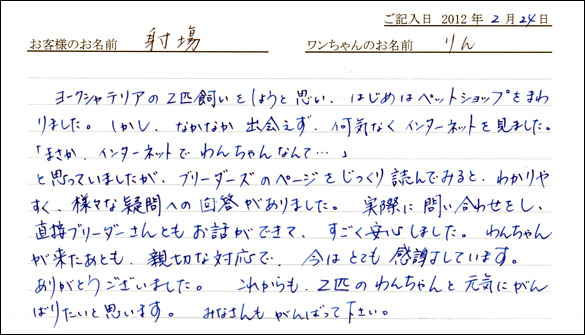 ご記入日 2012年2月24日
お客様のお名前 射場 ワンちゃんのお名前 りん
ヨークシャテリアの2匹飼いをしようと思い、はじめはペットショップをまわ
りました。しかし、なかなか出会えず、何気なくインターネットを見ました。
「まさか、インターネットでわんちゃんなんて…」
と思っていましたが、ブリーダーズのページをじっくり読んでみると、わかりや
すく、様々な疑問への回答がありました。実際に問い合わせをし、
直接ブリーダーさんともお話ができて、すごく安心しました。わんちゃん
が来たあとも、親切な対応で、今はとても感謝しています。
ありがとうございました。これからも、2匹のわんちゃんと元気にがん
ばりたいと思います。みなさんもがんばって下さい。